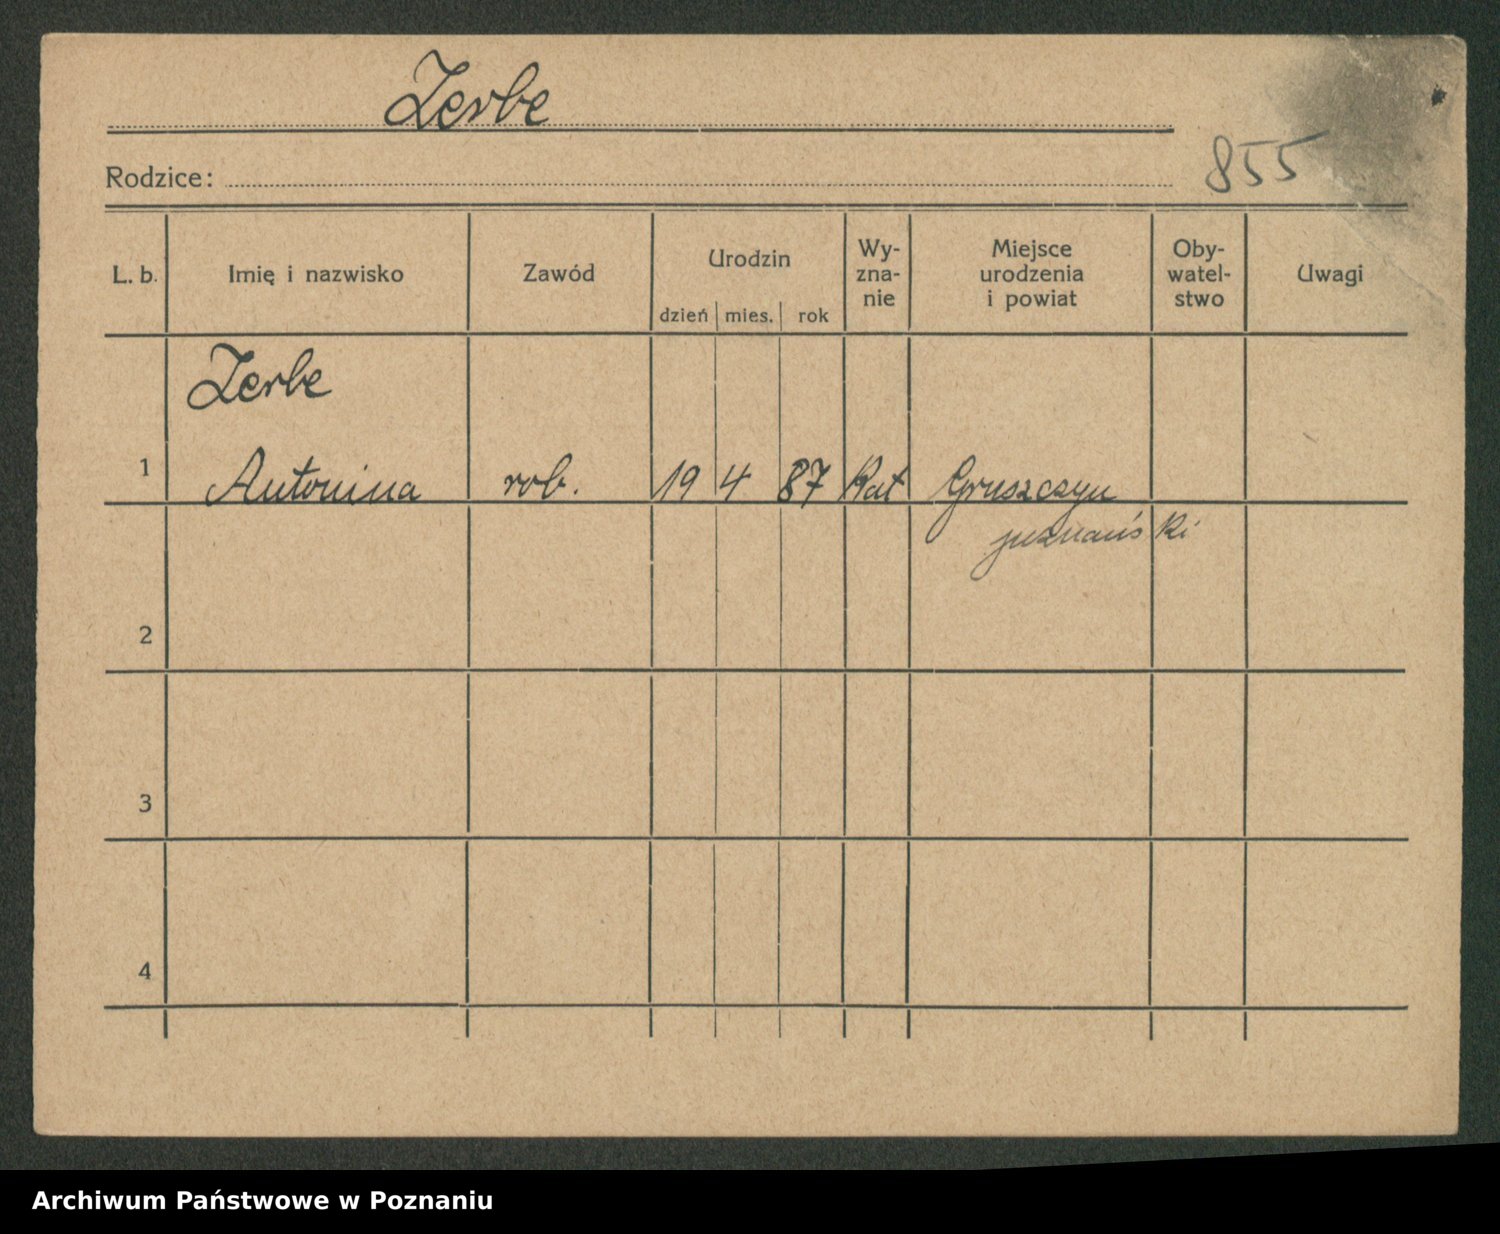 Zerbe
Rodzice:
855
L. b.
Imię i nazwisko
Zawód
Urodzin
dzień mies. rok
Wy-
zna-
nie
Miejsce
urodzenia
i powiat
Oby-
watel-
stwo
Uwagi
Zerbe
1 Antonina rob. 19 4 87 Kat Gruszczyn
poznański
2
3
4
Archiwum Państwowe w Poznaniu